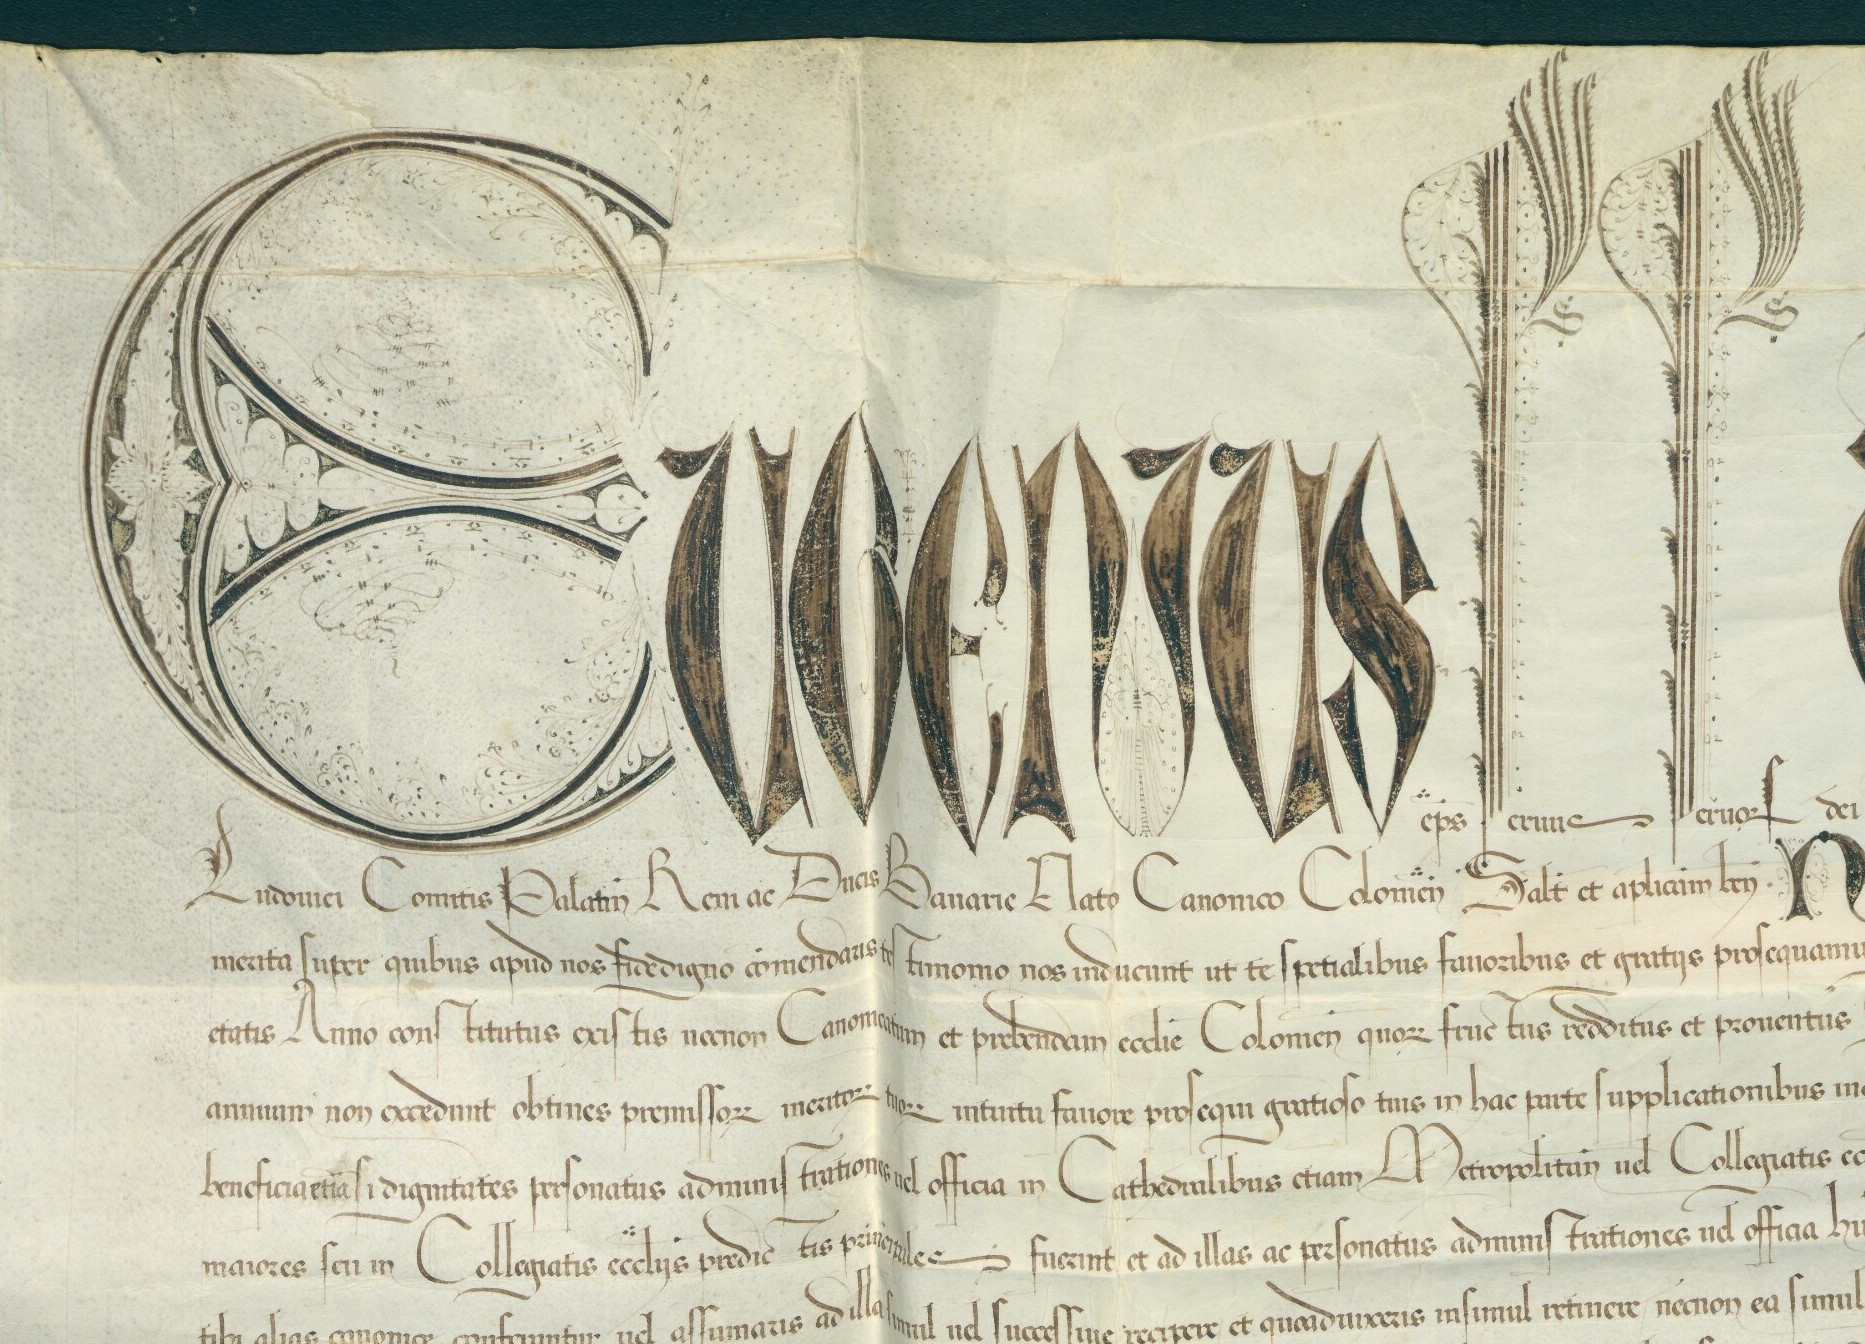 EUGENIUS eps Seruus Seruoꝝ dei
Ludouici Comitis Palatin Reni ac Ducis Bauarie Nato Canonico Colonien Salt et aplicam ben N
merita super quibus apud nos fidedigno comendaris testimonio nos inducunt ut te spetialibus fauoribus et gratijs prosequamu
etatis Anno constitutus existis necnon Canonicatum et prebendam ecclie Colonien quoꝝ fructus redditus et prouentus
annuum non excedunt obtines premissoꝝ meritoꝝ tuoꝝ intuitu fauore prosequi gratioso tuis in hac parte supplicationibus in
beneficia etiā si dignitates personatus administrationes uel officia in Cathedralibus etiam Metropolitan uel Collegiatis ec
maiores seu in Collegiatis ecclijs predictis principales fuerint et ad illas ac personatus administrationes uel officia hu
tibi alias canonice conferuntur uel assumaris ad illa simul uel successiue recipere et quoaduixeris insimul retinere necnon ea simul